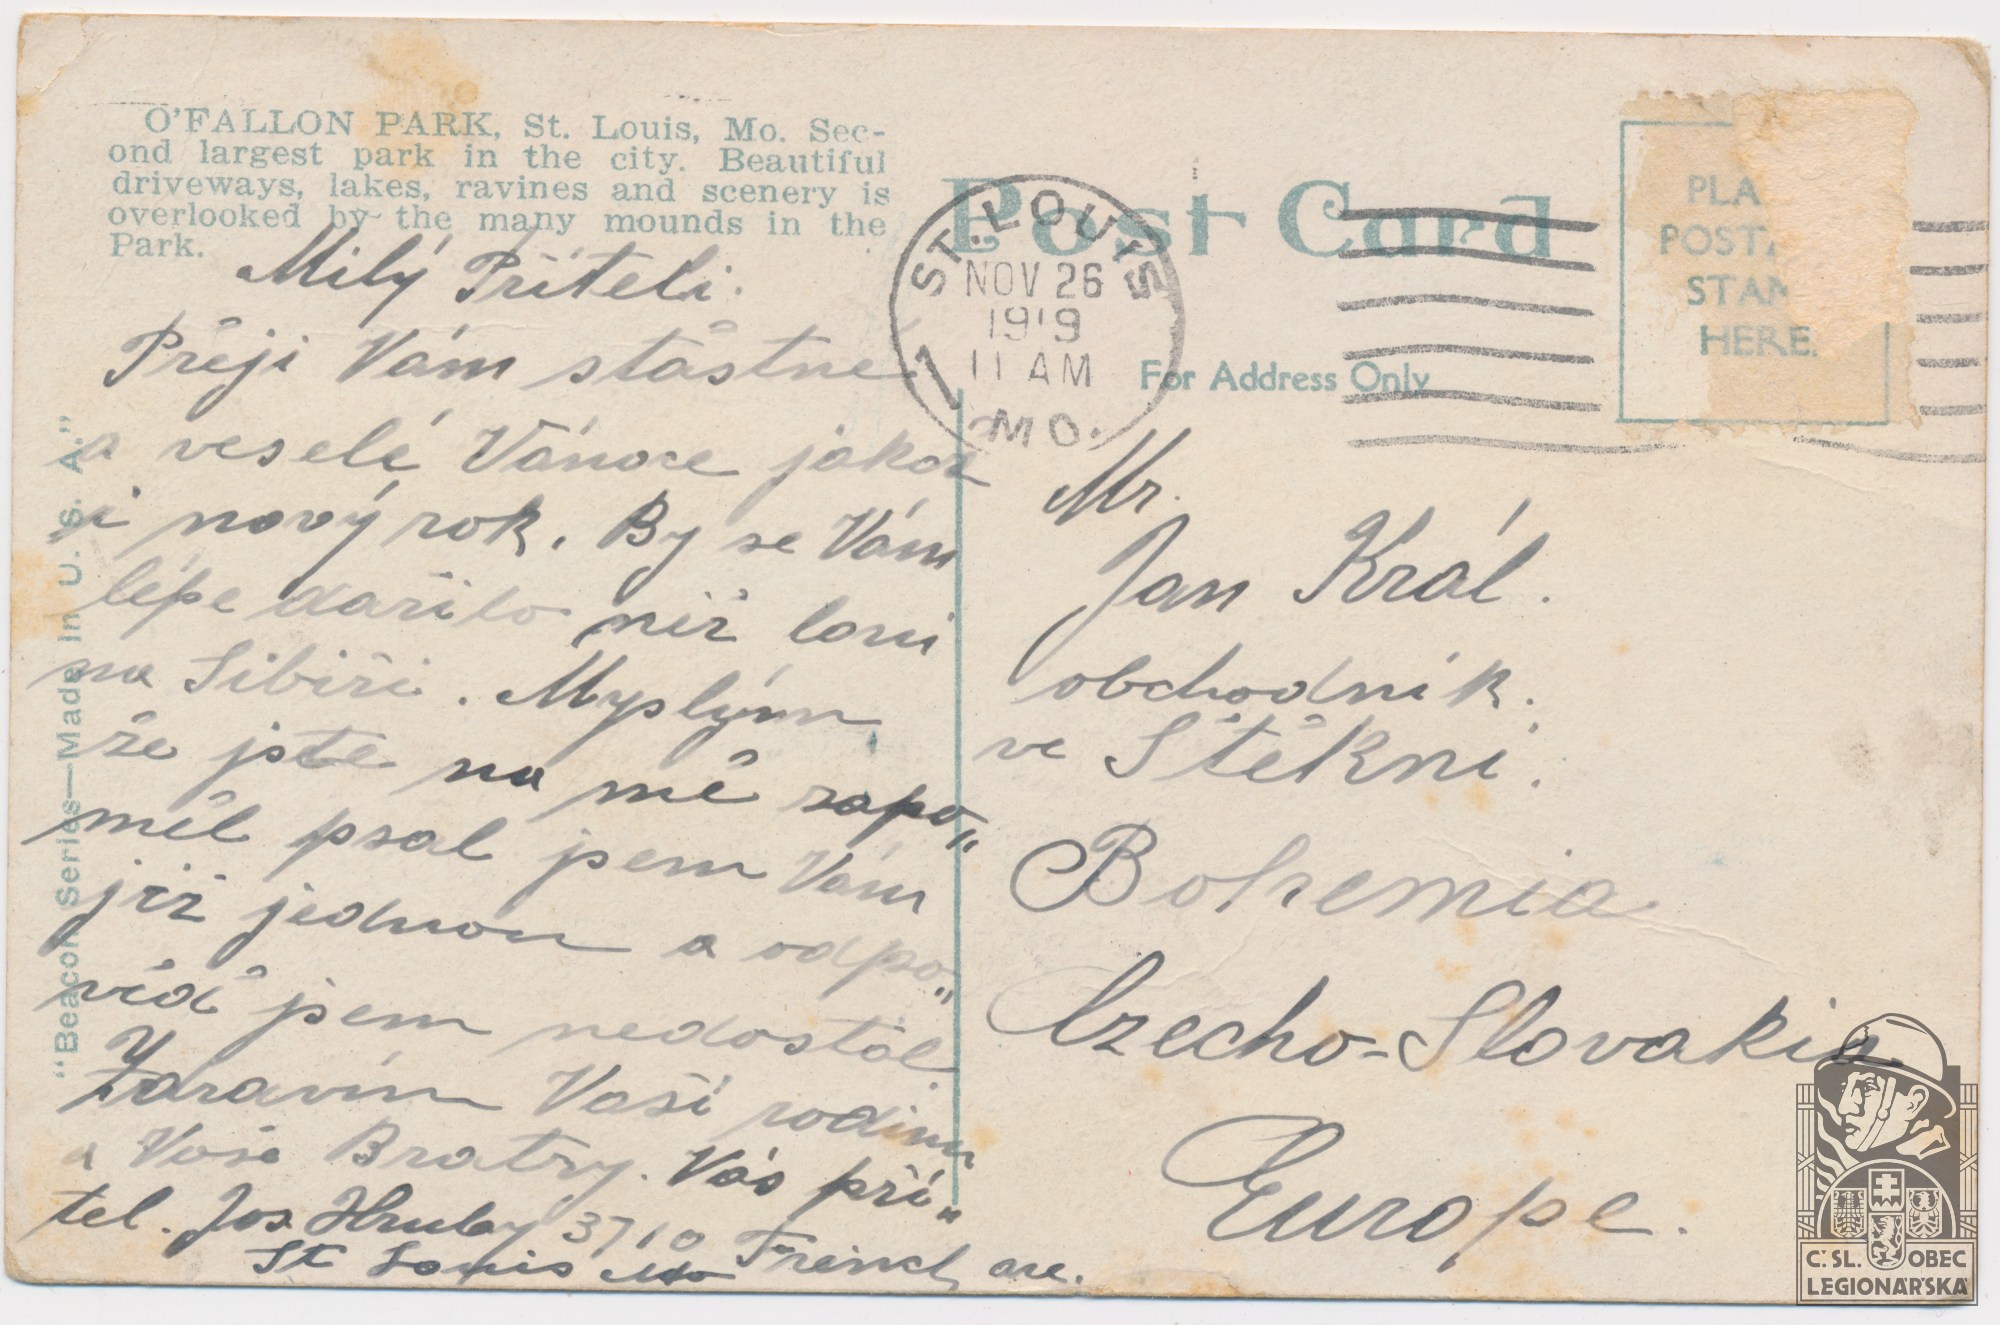 O'FALLON PARK, St. Louis, Mo. Sec-
ond largest park in the city. Beautiful
driveways, lakes, ravines and scenery is
overlooked by the many mounds in the
Park.
"Beacon Series—Made In U. S. A."
Milý Příteli.
Přeji Vám stástné
a veselé Vánoce jakož
i nový rok. By se Vám
lépe dařilo než loni
na Sibiři. Myslým
že jste na mě zapo„
měl psal jsem Vám
již jednou a odpo„
věď jsem nedostal.
Zdravím Vaší rodinu
a Vaše Bratry. Vás pří„
tel. Jos. Hruby 3710 French ave.
St Louis Mo
Post Card
ST. LOUIS
NOV 26
1919
11 AM
MO.
1
For Address Only
PLA
POSTA
STAM
HERE.
Mr.
Jan Král.
obchodník.
ve Štěkni.
Bohemia
Czecho-Slovakia
Europe.
Č. SL. OBEC
LEGIONÁŘSKÁ